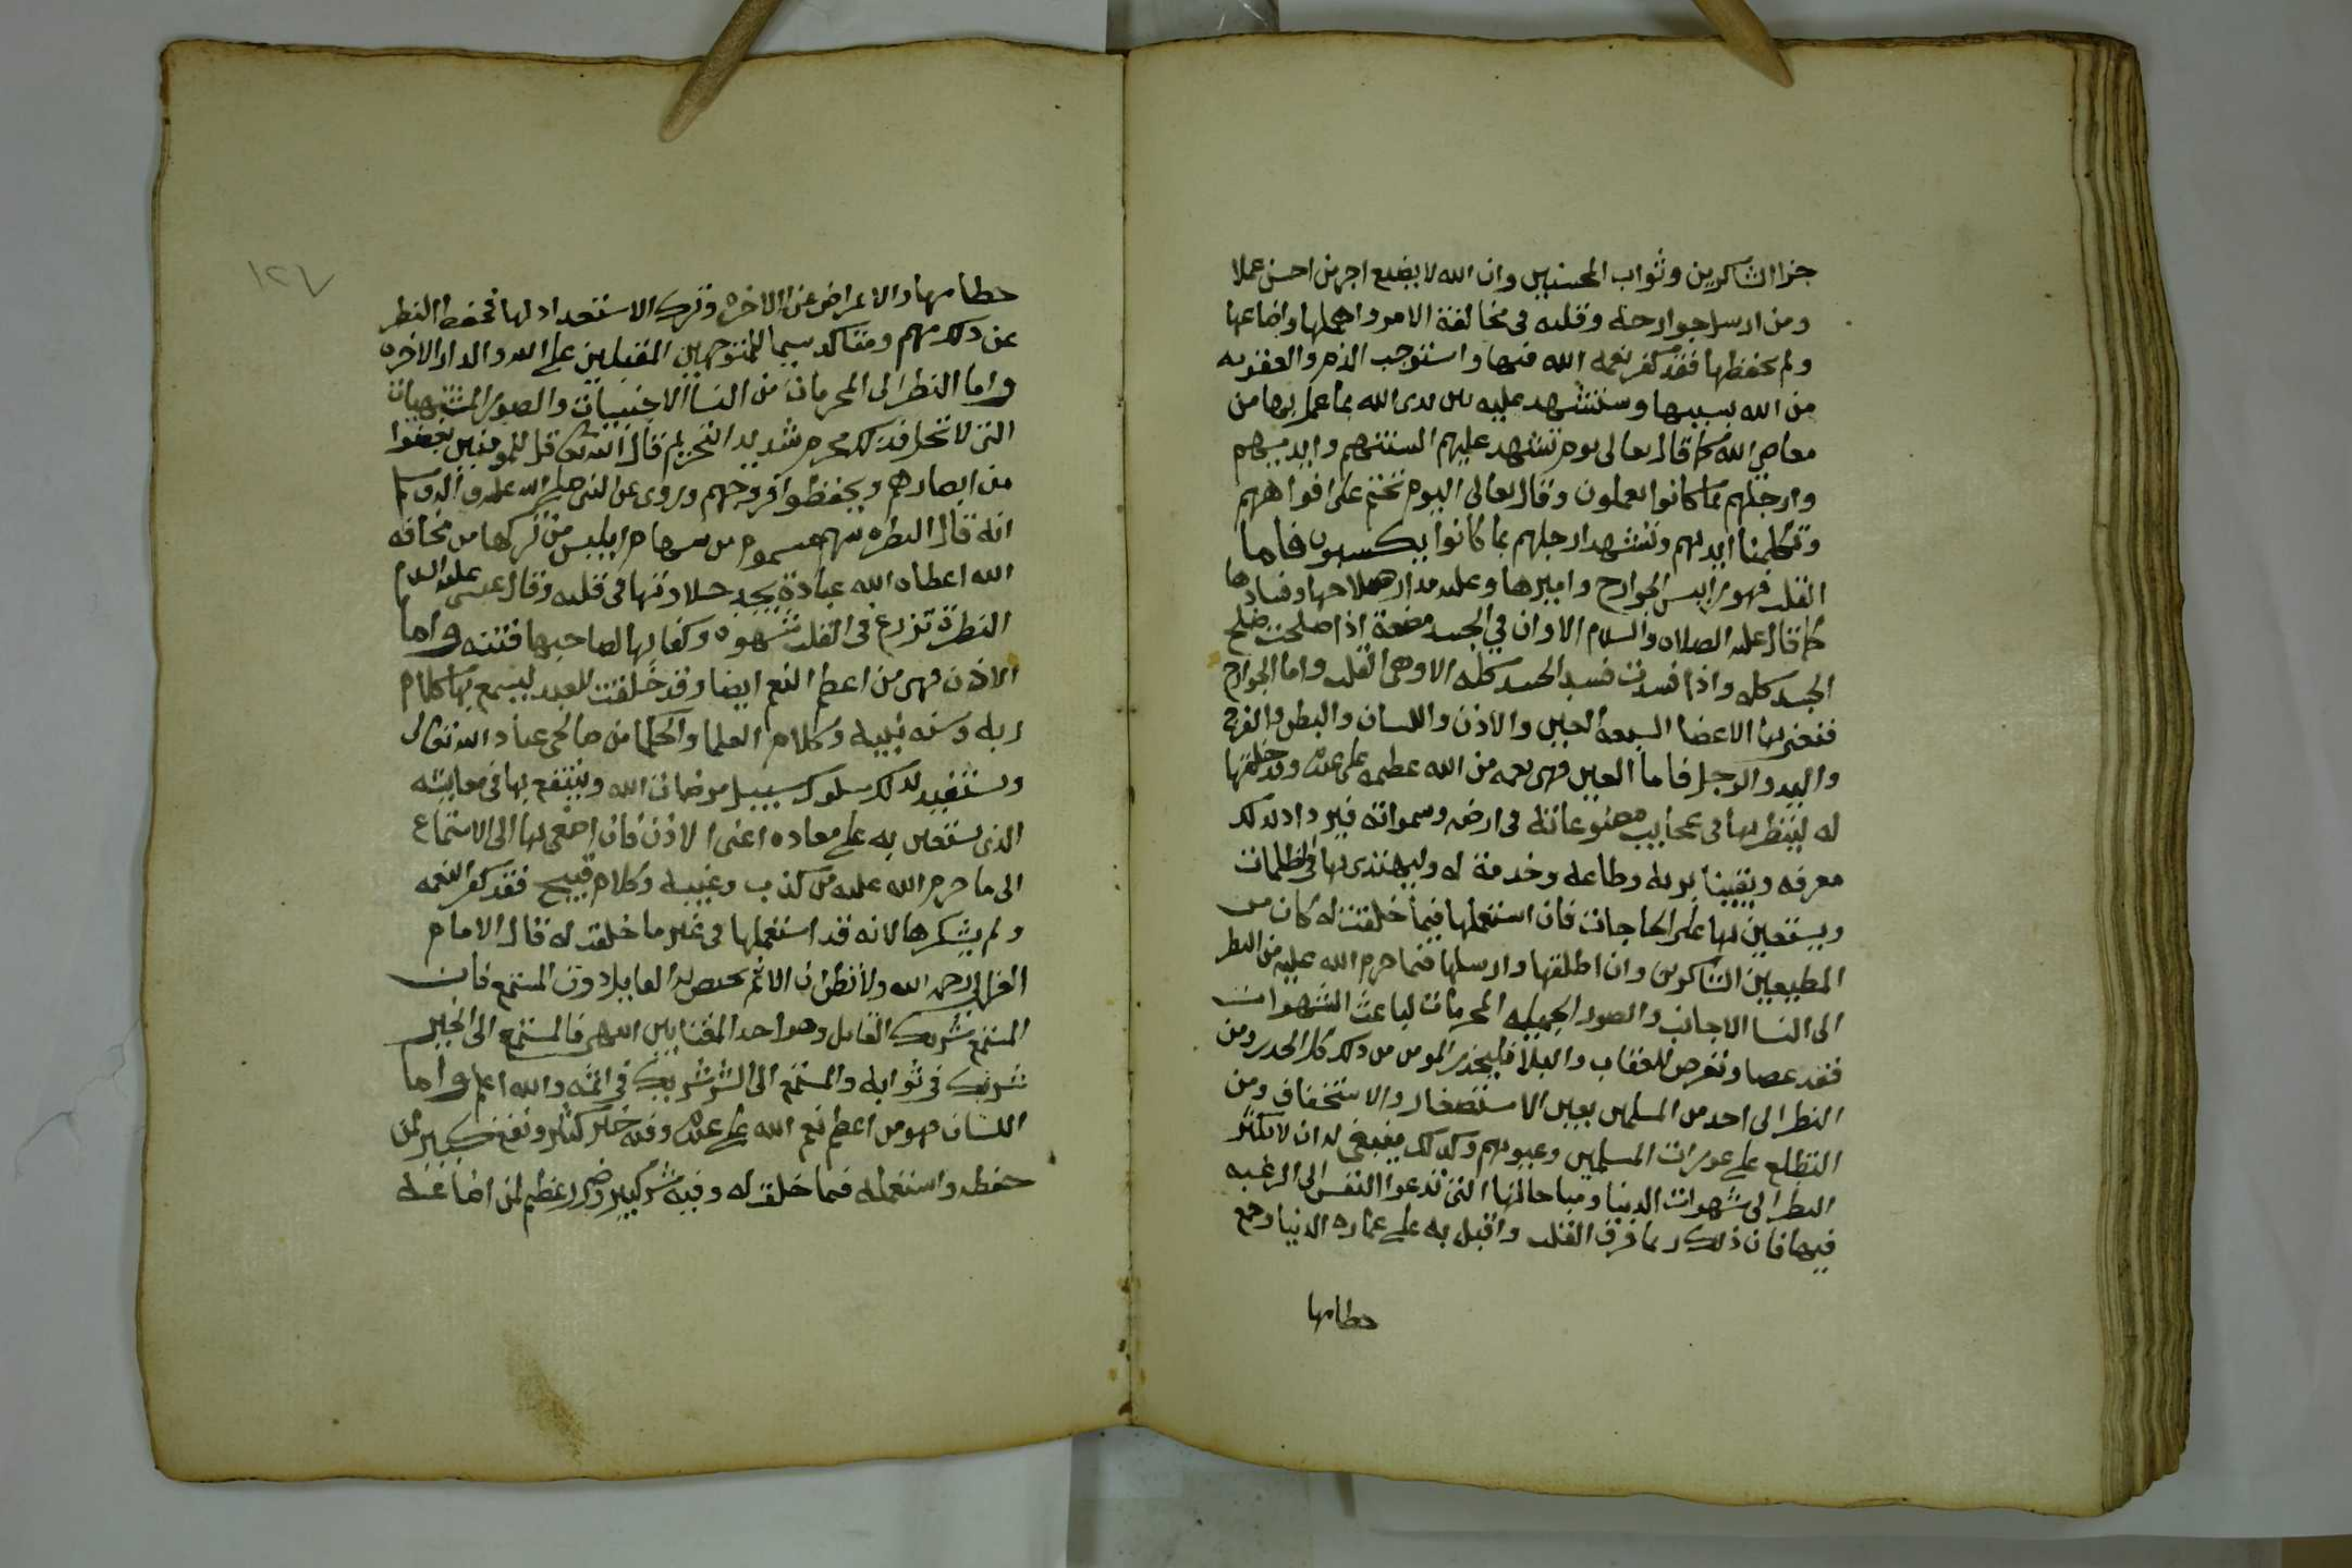 جزا الشاكرين وثواب المحسنين وان الله لا يضيع اجر من احسن عملا
ومن ارسل جوارحه وقلبه فى مخالفة الامر واهملها واضاعها
ولم يحفظها فقد كفر نعمه الله فيها واستوجب الذم والعقوبه
من الله بسببها وستشهد عليه بين يدى الله بما عمل بها من
معاصي الله كما قال تعالى يوم تشهد عليهم السنتهم وايديهم
وارجلهم بما كانوا يعملون وقال تعالى اليوم نختم على افواههم
وتكلمنا ايديهم وتشهد ارجلهم بما كانوا يكسبون فاما
القلب فهو رايس الجوارح واميرها وعليه مدار صلاحها وفسادها
كما قال عليه الصلاه والسلام الا وان في الجسد مضغة اذا صلحت صلح
الجسد كله واذا فسدت فسد الجسد كله الا وهى القلب واما الجوارح
فنعنى بها الاعضا السبعة العين والاذن واللسان والبطن والفرج
واليد والرجل فاما العين فهى نعمه من الله عظيمه على عبده وقد خلقها
له لينظر بها فى عجايب مصنوعاته فى ارضه وسمواته فيزداد بذلك
معرفه ويقينا بربه وطاعه وخدمة له وليهتدى بها فى الظلمات
ويستعين بها على الحاجات فان استعملها فيما خلقت له كان من
المطيعين الشاكرين وان اطلقها وارسلها فيما حرم الله عليه من النظر
الى النسا الاجانب والصور الجميله المحرمات لباعث الشهوات
فقد عصا وتعرض للعقاب والبلا فليحذر المومن من ذلك كل الحذر ومن
النظر الى احد من المسلمين بعين الاستصغار والاستخفاف ومن
التطلع على عورات المسلمين وعيوبهم وكذلك ينبغى له ان لا يكثر
النظر الى شهوات الدنيا ومباحاتها التى تدعوا النفس الى الرغبه
فيها فان ذلك ربما فرق القلب واقبل به على عماره الدنيا وجمع
حطامها
١٢٧
حطامها والاعراض عن الاخره وترك الاستعداد لها فحفظ النظر
عن ذلك مهم ومتاكد سيما للمتوجهين المقبلين على الله والدار الاخره
واما النظر الى المحرمات من النسا الاجنبيات والصور المشتهيات
التى لا تحل فذلك محرم شديد التحريم قال الله تعالى قل للمومنين يغضوا
من ابصارهم ويحفظوا فروجهم وروى عن النبى صلى الله عليه واله وسلم
انه قال النظره سهم مسموم من سهام ابليس من تركها من مخافه
الله اعطاه الله عبادة يجد حلاوتها فى قلبه وقال عيسى عليه السلام
النظرة تزرع فى القلب شهوه وكفا بها لصاحبها فتنه واما
الاذن فهى من اعظم النعم ايضا وقد خلقت للعبد ليسمع بها كلام
ربه وسنه نبيه وكلام العلما والحكما من صالحى عباد الله تعالى
ويستفيد بذلك سلوك سبيل مرضات الله وينتفع بها فى معايشه
الذى يستعين به على معاده اعنى الاذن فان اصغى بها الى الاستماع
الى ما حرم الله عليه من كذب وغيبه وكلام قبيح فقد كفر النعمه
ولم يشكرها لانه قد استعملها فى غير ما خلقت له قال الامام
الغزالى رحمه الله ولا تظن ان الاثم يختص به القايل دون المستمع فان
المستمع شريك القايل وهو احد المغتابين انتهى فالمستمع الى الخير
شريك فى ثوابه والمستمع الى الشر شريك فى اثمه والله اعلم واما
اللسان فهو من اعظم نعم الله على عبده وفيه خير كثير ونفع كبير لمن
حفظه واستعمله فيما خلق له وفيه شر كبير وضرر عظيم لمن اضاعه